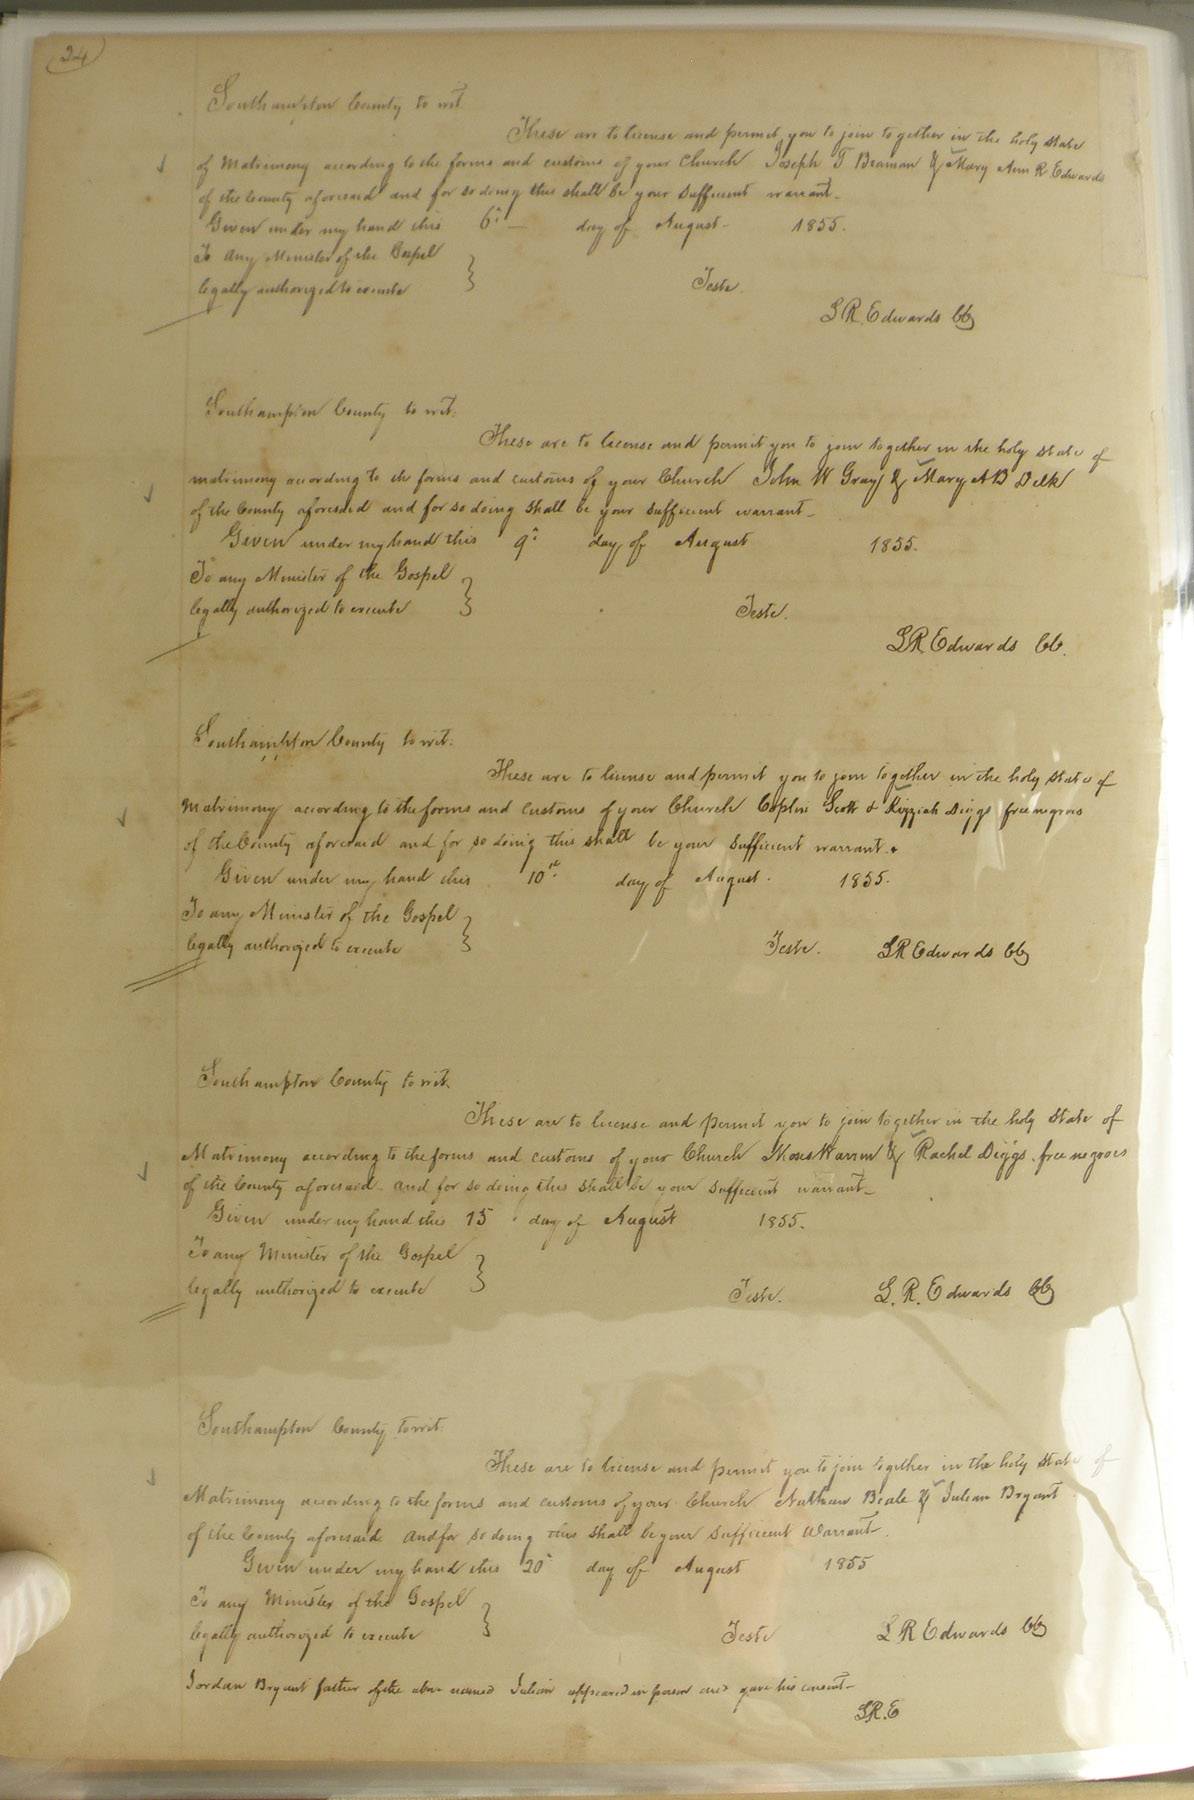 24
Southampton County to wit
These are to license and permit you to join together in the holy state
of Matrimony according to the forms and customs of your Church Joseph T Beaman & Mary Ann R Edwards
of the County aforesaid and for so doing this shall be your sufficient warrant.
Given under my hand this 6th day of August 1855.
To any Minister of the Gospel
legally authorized to execute
Teste
L R Edwards CC
Southampton County to wit.
These are to license and permit you to join together in the holy state of
matrimony according to the forms and customs of your Church John W Gray & Mary A B Delk
of the County aforesaid and for so doing shall be your sufficient warrant
Given under my hand this 9th day of August 1855.
To any Minister of the Gospel
legally authorized to execute
Teste.
L R Edwards CC.
Southampton County to wit.
These are to license and permit you to join together in the holy state of
Matrimony according to the forms and customs of your Church Scott & Kizziah Diggs free negroes
of the County aforesaid and for so doing this shall be your sufficient warrant.
Given under my hand this 10th day of August. 1855.
To any Minister of the Gospel
legally authorized to execute
Teste. L R Edwards CC
Southampton County to wit.
These are to license and permit you to join together in the holy state of
Matrimony according to the forms and customs of your Church Warren & Rachel Diggs free negroes
of the County aforesaid and for so doing this shall be your sufficient warrant
Given under my hand this 15 day of August 1855.
To any Minister of the Gospel
legally authorized to execute
Teste. L. R. Edwards CC
Southampton County to wit.
These are to license and permit you to join together in the holy state of
Matrimony according to the forms and customs of your Church Nathan Beale & Julian Bryant
of the County aforesaid and for so doing this shall be your sufficient warrant.
Given under my hand this 20th day of August 1855
To any Minister of the Gospel
legally authorized to execute
Teste L R Edwards CC
Jordan Bryant father of the above named Julian appeared in person and gave his consent
L.R.E